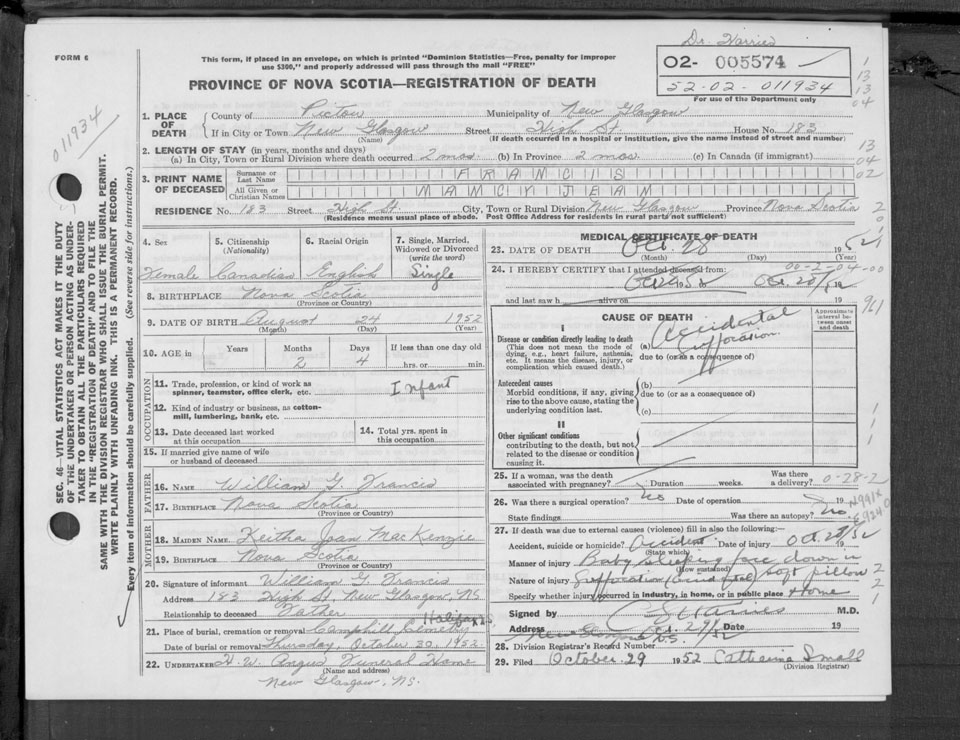 FORM 6
This form, if placed in an envelope, on which is printed "Dominion Statistics—Free, penalty for improper
use $300," and properly addressed will pass through the mail "FREE"
PROVINCE OF NOVA SCOTIA—REGISTRATION OF DEATH
02- 005574
52-02-011934
For use of the Department only
1
13
13
04
011934
1. PLACE OF DEATH
County of Pictou Municipality of New Glasgow
If in City or Town New Glasgow Street High St. House No. 183
(Name) (If death occurred in a hospital or institution, give the name instead of street and number)
2. LENGTH OF STAY (in years, months and days)
(a) In City, Town or Rural Division where death occurred 2 mos. (b) In Province 2 mos. (c) In Canada (if immigrant)
13
04
02
3. PRINT NAME OF DECEASED
Surname or Last Name FRANCIS
All Given or Christian Names NANCY JEAN
RESIDENCE No. 183 Street High St. City, Town or Rural Division New Glasgow Province Nova Scotia
(Residence means usual place of abode. Post Office Address for residents in rural parts not sufficient)
4. Sex
Female
5. Citizenship (Nationality)
Canadian
6. Racial Origin
English
7. Single, Married, Widowed or Divorced (write the word)
Single
8. BIRTHPLACE Nova Scotia
(Province or Country)
9. DATE OF BIRTH August 24 1952
(Month) (Day) (Year)
10. AGE in Years Months 2 Days 4 If less than one day old
hrs. or min.
OCCUPATION
11. Trade, profession, or kind of work as spinner, teamster, office clerk, etc. Infant
12. Kind of industry or business, as cotton-mill, lumbering, bank, etc.
13. Date deceased last worked at this occupation
14. Total yrs. spent in this occupation
15. If married give name of wife or husband of deceased
FATHER
16. NAME William G. Francis
17. BIRTHPLACE Nova Scotia
(Province or Country)
MOTHER
18. MAIDEN NAME Keitha Joan MacKenzie
19. BIRTHPLACE Nova Scotia
(Province or Country)
20. Signature of informant William G. Francis
Address 183 High St, New Glasgow, NS
Relationship to deceased Father
Halifax
21. Place of burial, cremation or removal Camphill Cemetery
Date of burial or removal Thursday, October 30, 1952.
22. UNDERTAKER H. W. Angus Funeral Home
(Name and address)
New Glasgow, NS.
MEDICAL CERTIFICATE OF DEATH
23. DATE OF DEATH Oct. 28 1952
(Month) (Day) (Year)
24. I HEREBY CERTIFY that I attended deceased from:
00-2-04-00
and last saw h alive on 19
CAUSE OF DEATH
Approximate interval between onset and death
I
Disease or condition directly leading to death
(This does not mean the mode of dying, e.g., heart failure, asthenia, etc. It means the disease, injury, or complication which caused death.)
(a) Accidental Suffocation
due to (or as a consequence of)
Antecedent causes
Morbid conditions, if any, giving rise to the above cause, stating the underlying condition last.
(b)
due to (or as a consequence of)
(c)
II
Other significant conditions
contributing to the death, but not related to the disease or condition causing it.
25. If a woman, was the death associated with pregnancy? Duration weeks. Was there a delivery?
0-28-2
26. Was there a surgical operation? No Date of operation 19
State findings Was there an autopsy? No
27. If death was due to external causes (violence) fill in also the following:
Accident, suicide or homicide? Accident Date of injury Oct. 28/52
(State which)
Manner of injury Baby sleeping face down in
(How sustained)
Nature of injury Suffocation (accidental) soft pillow
Specify whether injury occurred in industry, in home, or in public place Home
Signed by M.D.
Address Date Oct. 29/52 19
28. Division Registrar's Record Number
29. Filed October 29 1952 Catherina Small
(Division Registrar)
SEC. 46—VITAL STATISTICS ACT MAKES IT THE DUTY
OF THE UNDERTAKER OR PERSON ACTING AS UNDER-
TAKER TO OBTAIN ALL THE PARTICULARS REQUIRED
IN THE "REGISTRATION OF DEATH" AND TO FILE THE
SAME WITH THE DIVISION REGISTRAR WHO SHALL ISSUE THE BURIAL PERMIT.
WRITE PLAINLY WITH UNFADING INK. THIS IS A PERMANENT RECORD.
Every item of information should be carefully supplied. (See reverse side for instructions.)